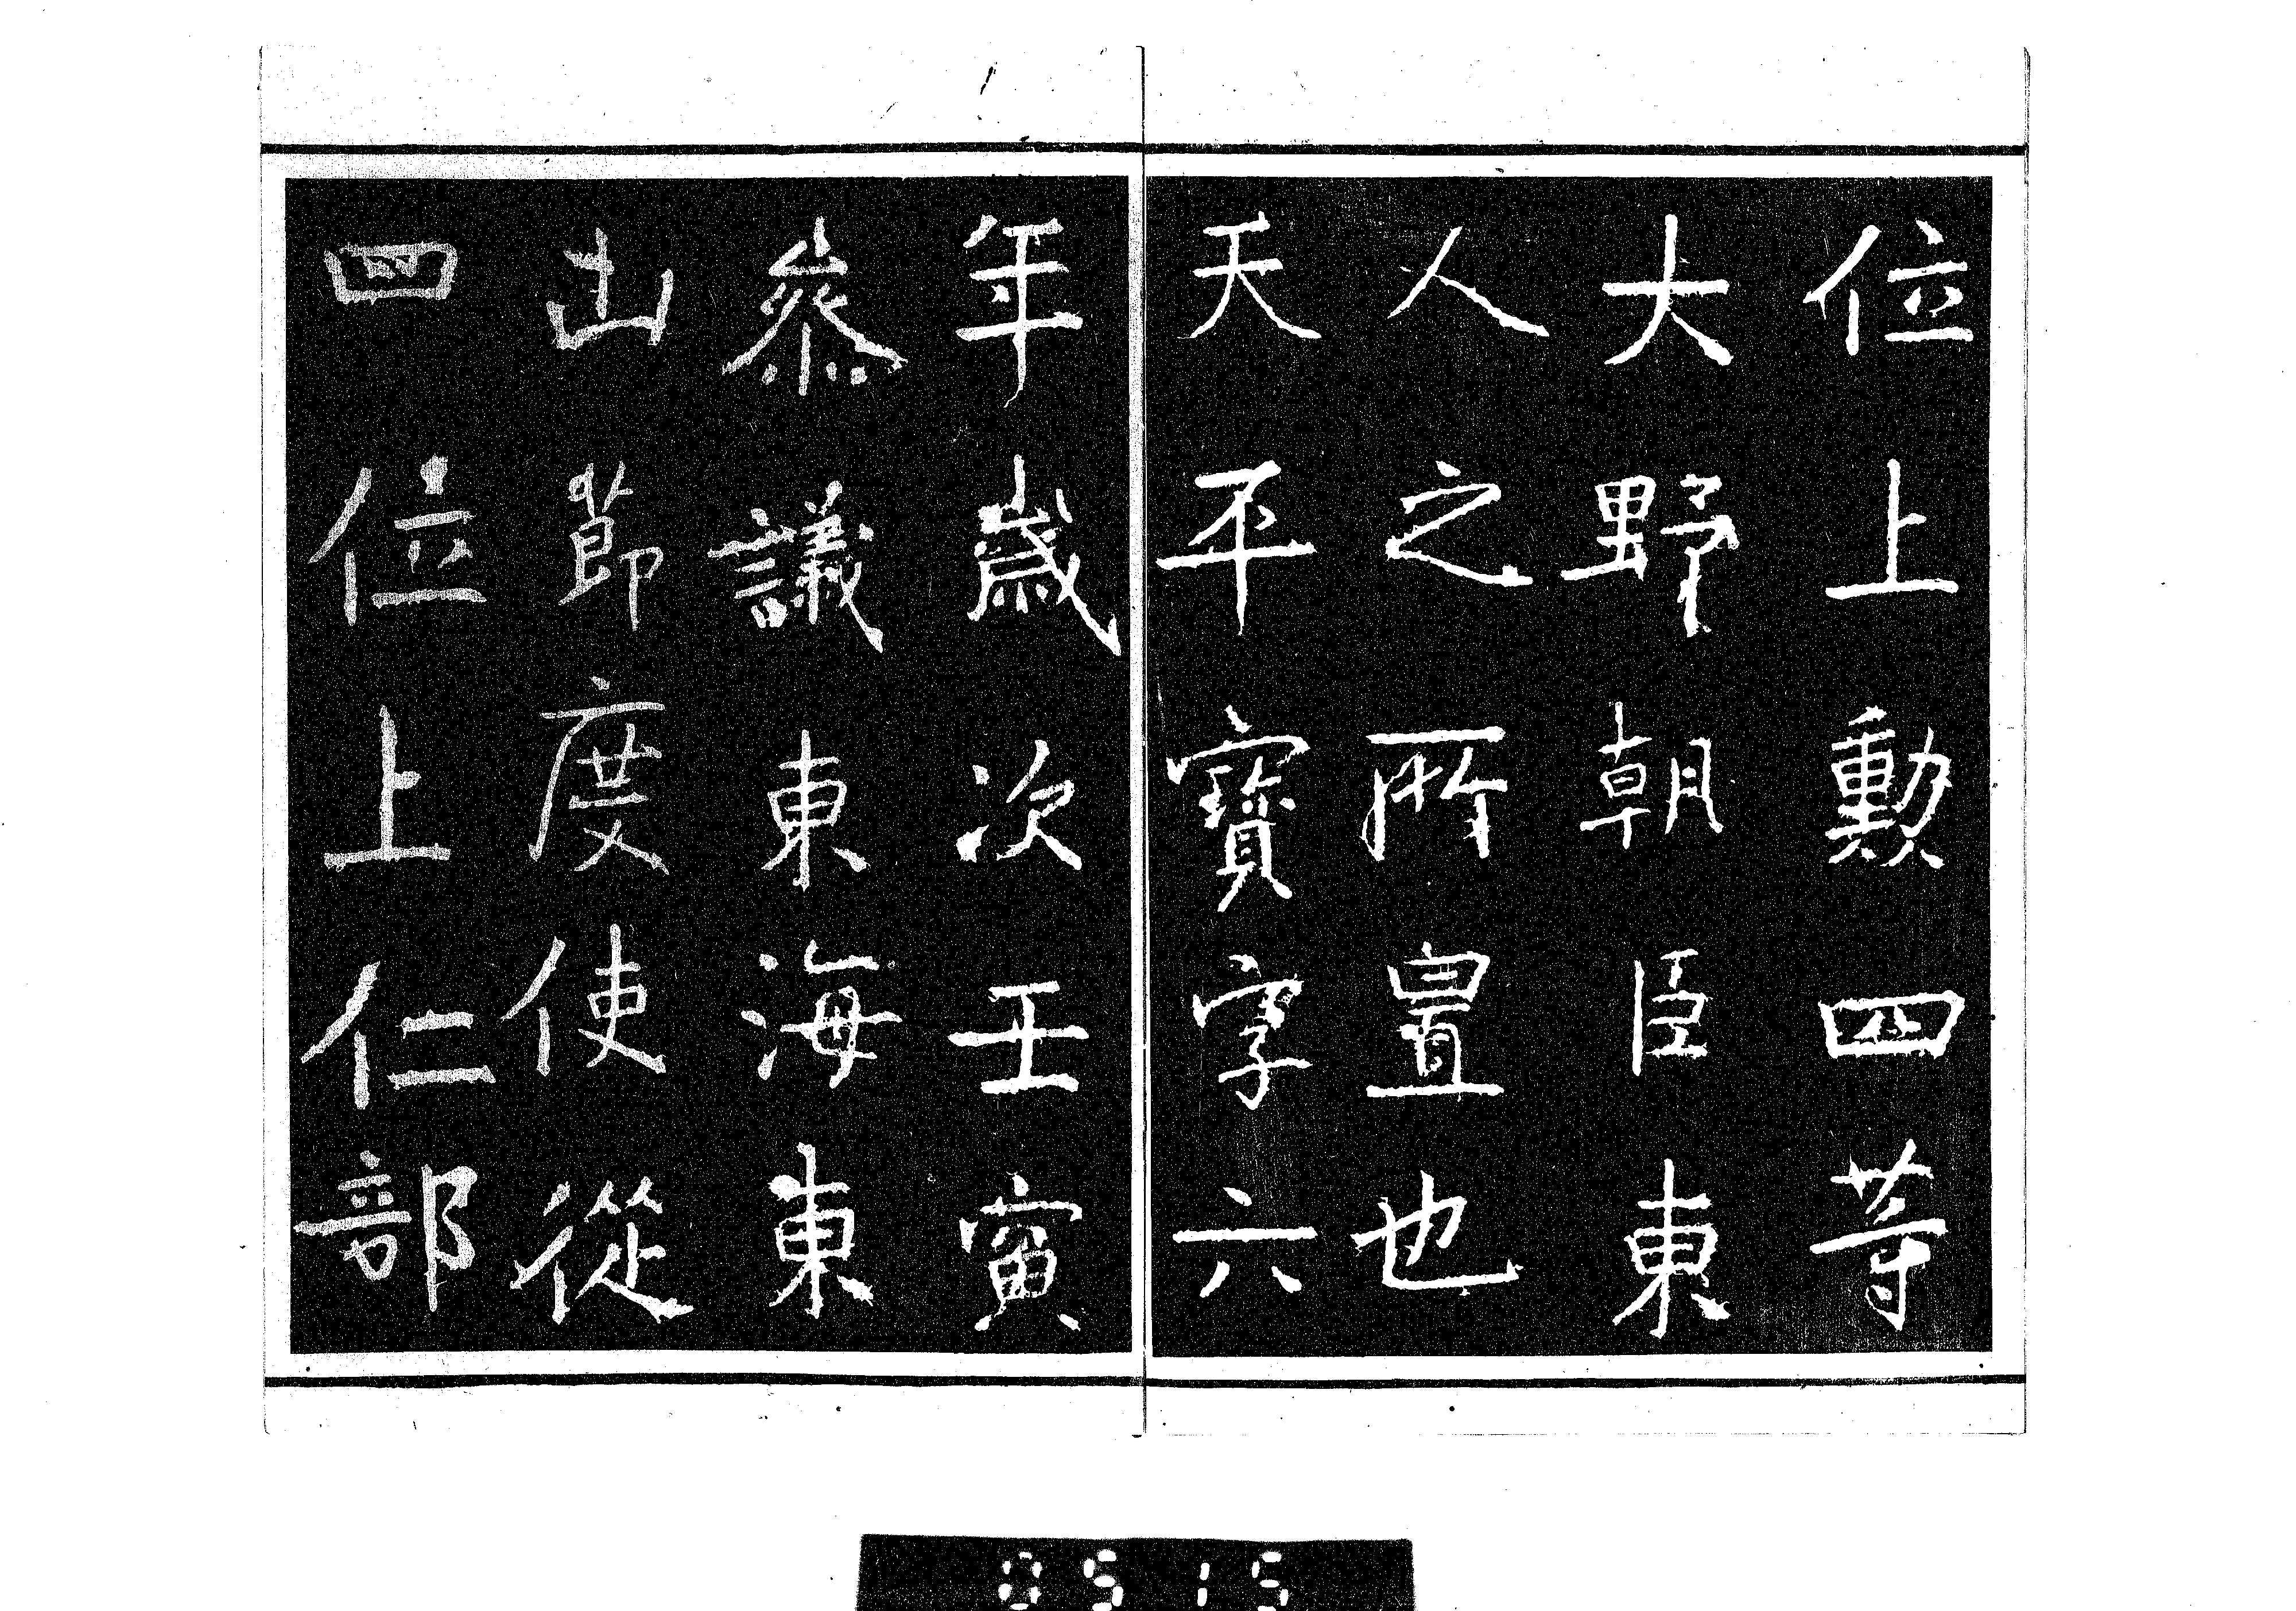 位上勳四等
大野朝臣東
人之所置也
天平寶字六
年歳次壬寅
參議東海東
山節度使從
四位上仁部
0515